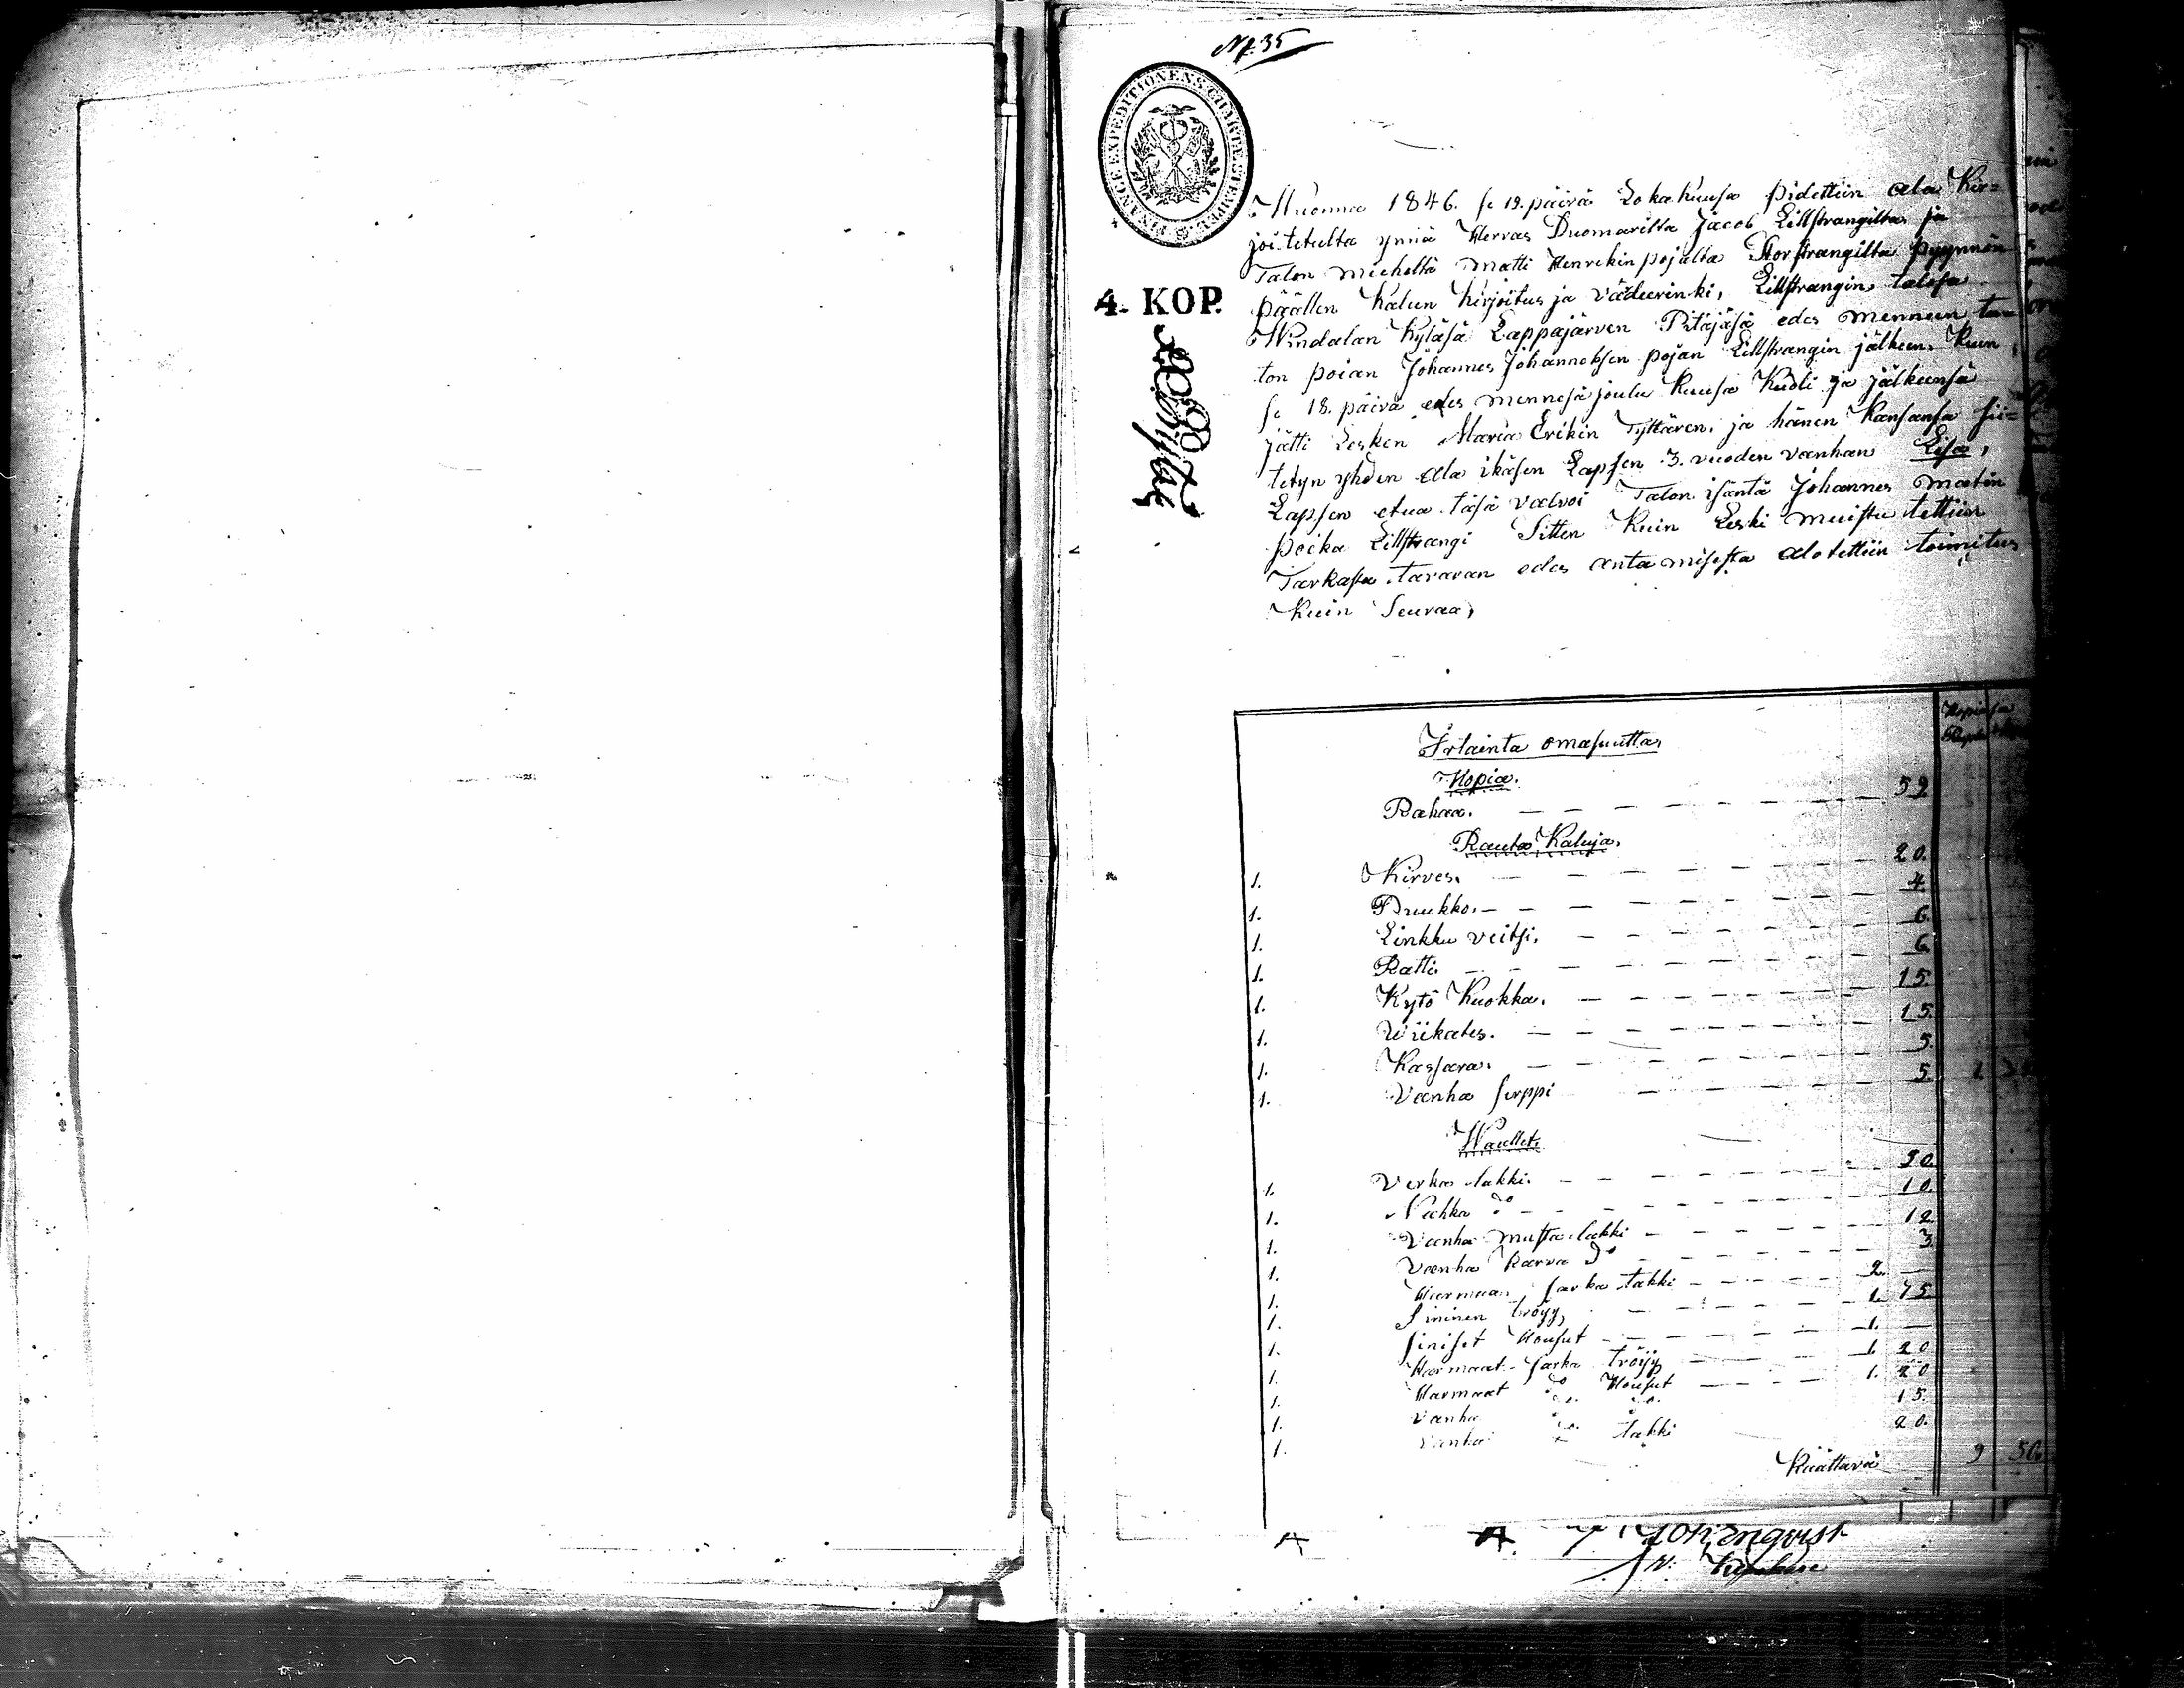 N:35
FINANCE EXPEDITIONENS CHARTÆ STEMPEL
4. KOP.
Wuonna 1846. se 19. päivä Lokakuusa pidettiin ala Kir=
joitetulta ynnä Herras Duomarilta Jacob Lillstrangilta ja
Talon mieheltä Matti Henrekin pojalta Storstrangilta pyynnön
päällen Kalun Kirjoitus ja väderinki, Lillstrangin talosa
Windalan Kyläsä Lappajärven Pitäjäsä edes menneen ta=
lon poian Johannes Johanneksen pojan Lillstrangin jälkeen, Kuin
se 18. päivä edes mennesä joulu Kuusa Kuoli ja jälkeensä
jätti Lesken Maria Erikin Tyttären, ja hänen Kansansa sii=
tetyn yhden ala ikäsen Lapsen 3. vuoden vanhan Lisa,
Lapsen etua täsä valvoi Talon isäntä Johannes Matin
poika Lillstrangi Sitten Kuin Leski muistu tettiin
Tarkasta tavaran edes anta misesta alotettiin toimitus
Kuin Seuraa,
Irtainta omasuutta,
Hopia.
Rahaa. 59
Rauta Kaluja.
1. Kirves. 20.
1. Puukko. 4.
1. Linkku veitsi. 6.
1. Ratti. 6.
1. Kytö Kuokka. 15.
1. Wiikates. 15.
1. Kassara. 5.
1. Vanha sirppi 5. 1.
Waattet.
1. Verka lakki. 30.
1. Nahka do 10.
1. Vanha musta lakki 12.
1. Vanha Karva do 3.
1. Harmaa sarka takki 2. —
1. Sininen tröyy, 1. 75.
1. siniset Housut 1. —
1. Harmaat sarka tröijy 1. 20
1. Harmaat do Housut 1. 20
1. Vanha do. do. 15.
1. Vanha do. takki 20.
Käättävä 9 50